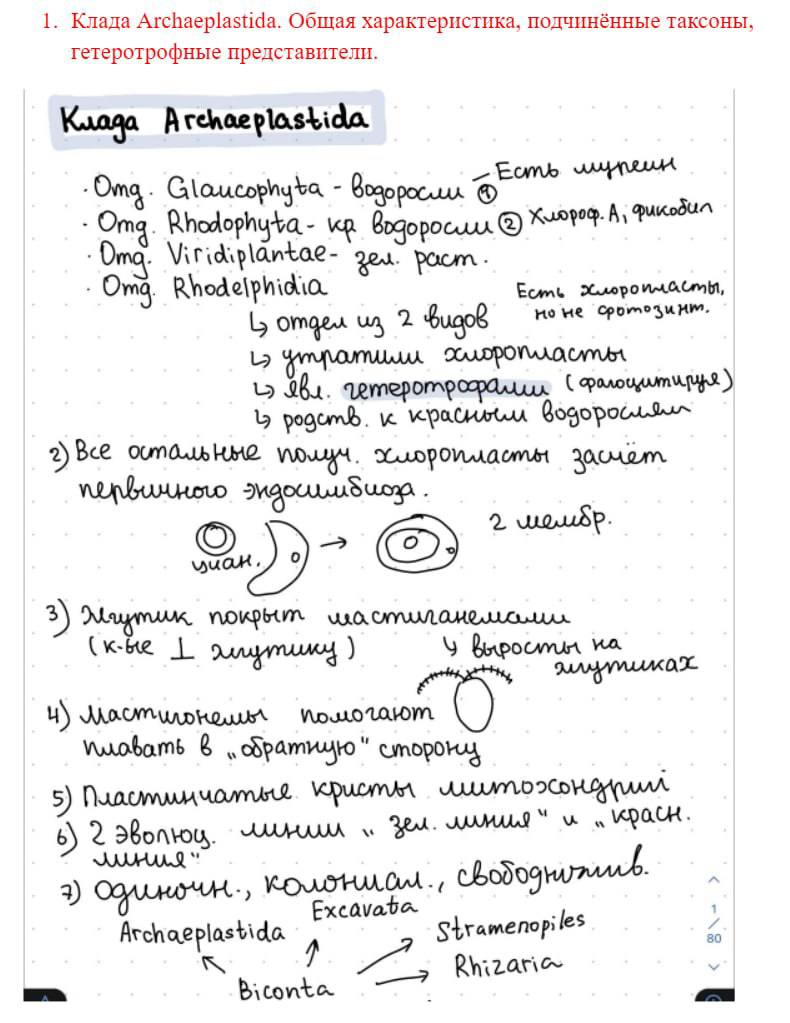 1. Клада Archaeplastida. Общая характеристика, подчинённые таксоны,
гетеротрофные представители.
Клада Archaeplastida
· Отд. Glaucophyta - водоросли ① - Есть муреин
· Отд. Rhodophyta - кр. водоросли ② Хлороф. А, фикобил
· Отд. Viridiplantae - зел. раст.
· Отд. Rhodelphidia
Есть хлоропласты,
но не фотозинт.
↳ отдел из 2 видов
↳ утратили хлоропласты
↳ явл. гетеротрофами (фагоцитируя)
↳ родств. к красным водорослям
2) Все остальные получ. хлоропласты засчёт
первичного эндосимбиоза.
циан. → 2 мембр.
3) Жгутик покрыт мастиганемами
(к-ые ⊥ жгутику) ↳ выросты на
жгутиках
4) Мастигонемы помогают
плавать в „обратную" сторону
5) Пластинчатые кристы митохондрий
6) 2 эволюц. линии „зел. линия" и „красн.
линия"
7) одиночн., колониал., свободножив.
Excavata
Archaeplastida
Stramenopiles
Rhizaria
Biconta
1
/
80